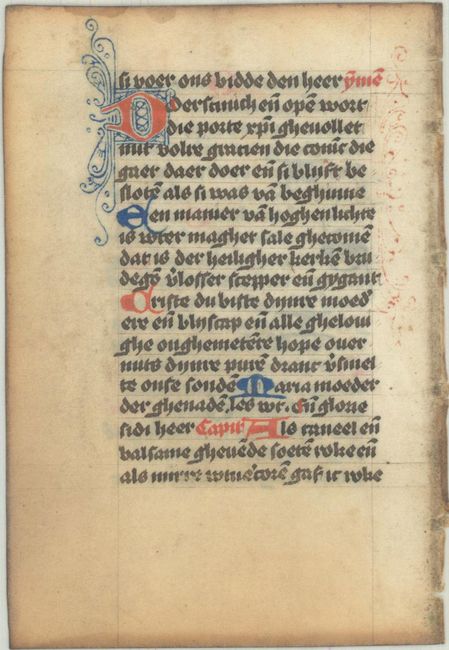 si voer ons bidde den heer ȳmē
Doerstuich eñ opē wort
die porte xp̄i ghevollet
mit volre gracien die coninc die
gaer daer doer eñ si blyft be
slotē als si was vā beghinne
Een manier vā hoghen lichte
is wter magher sale ghecomē
dat is der heiligher kerkē bru
degō v̄losser scepper eñ gygant
Criste du biste dynre moed'
ere eñ blyscap eñ alle ghelovi
ghe onghemetēre hope over
mits dynre purē dranc v̄smel
te onse sondē Maria moeder
der ghenadē, les wt. Eñ glorie
si di heer Capit Als caneel eñ
balsame ghevēde soetē roke eñ
als mirre wtvercorē gaf ic roke